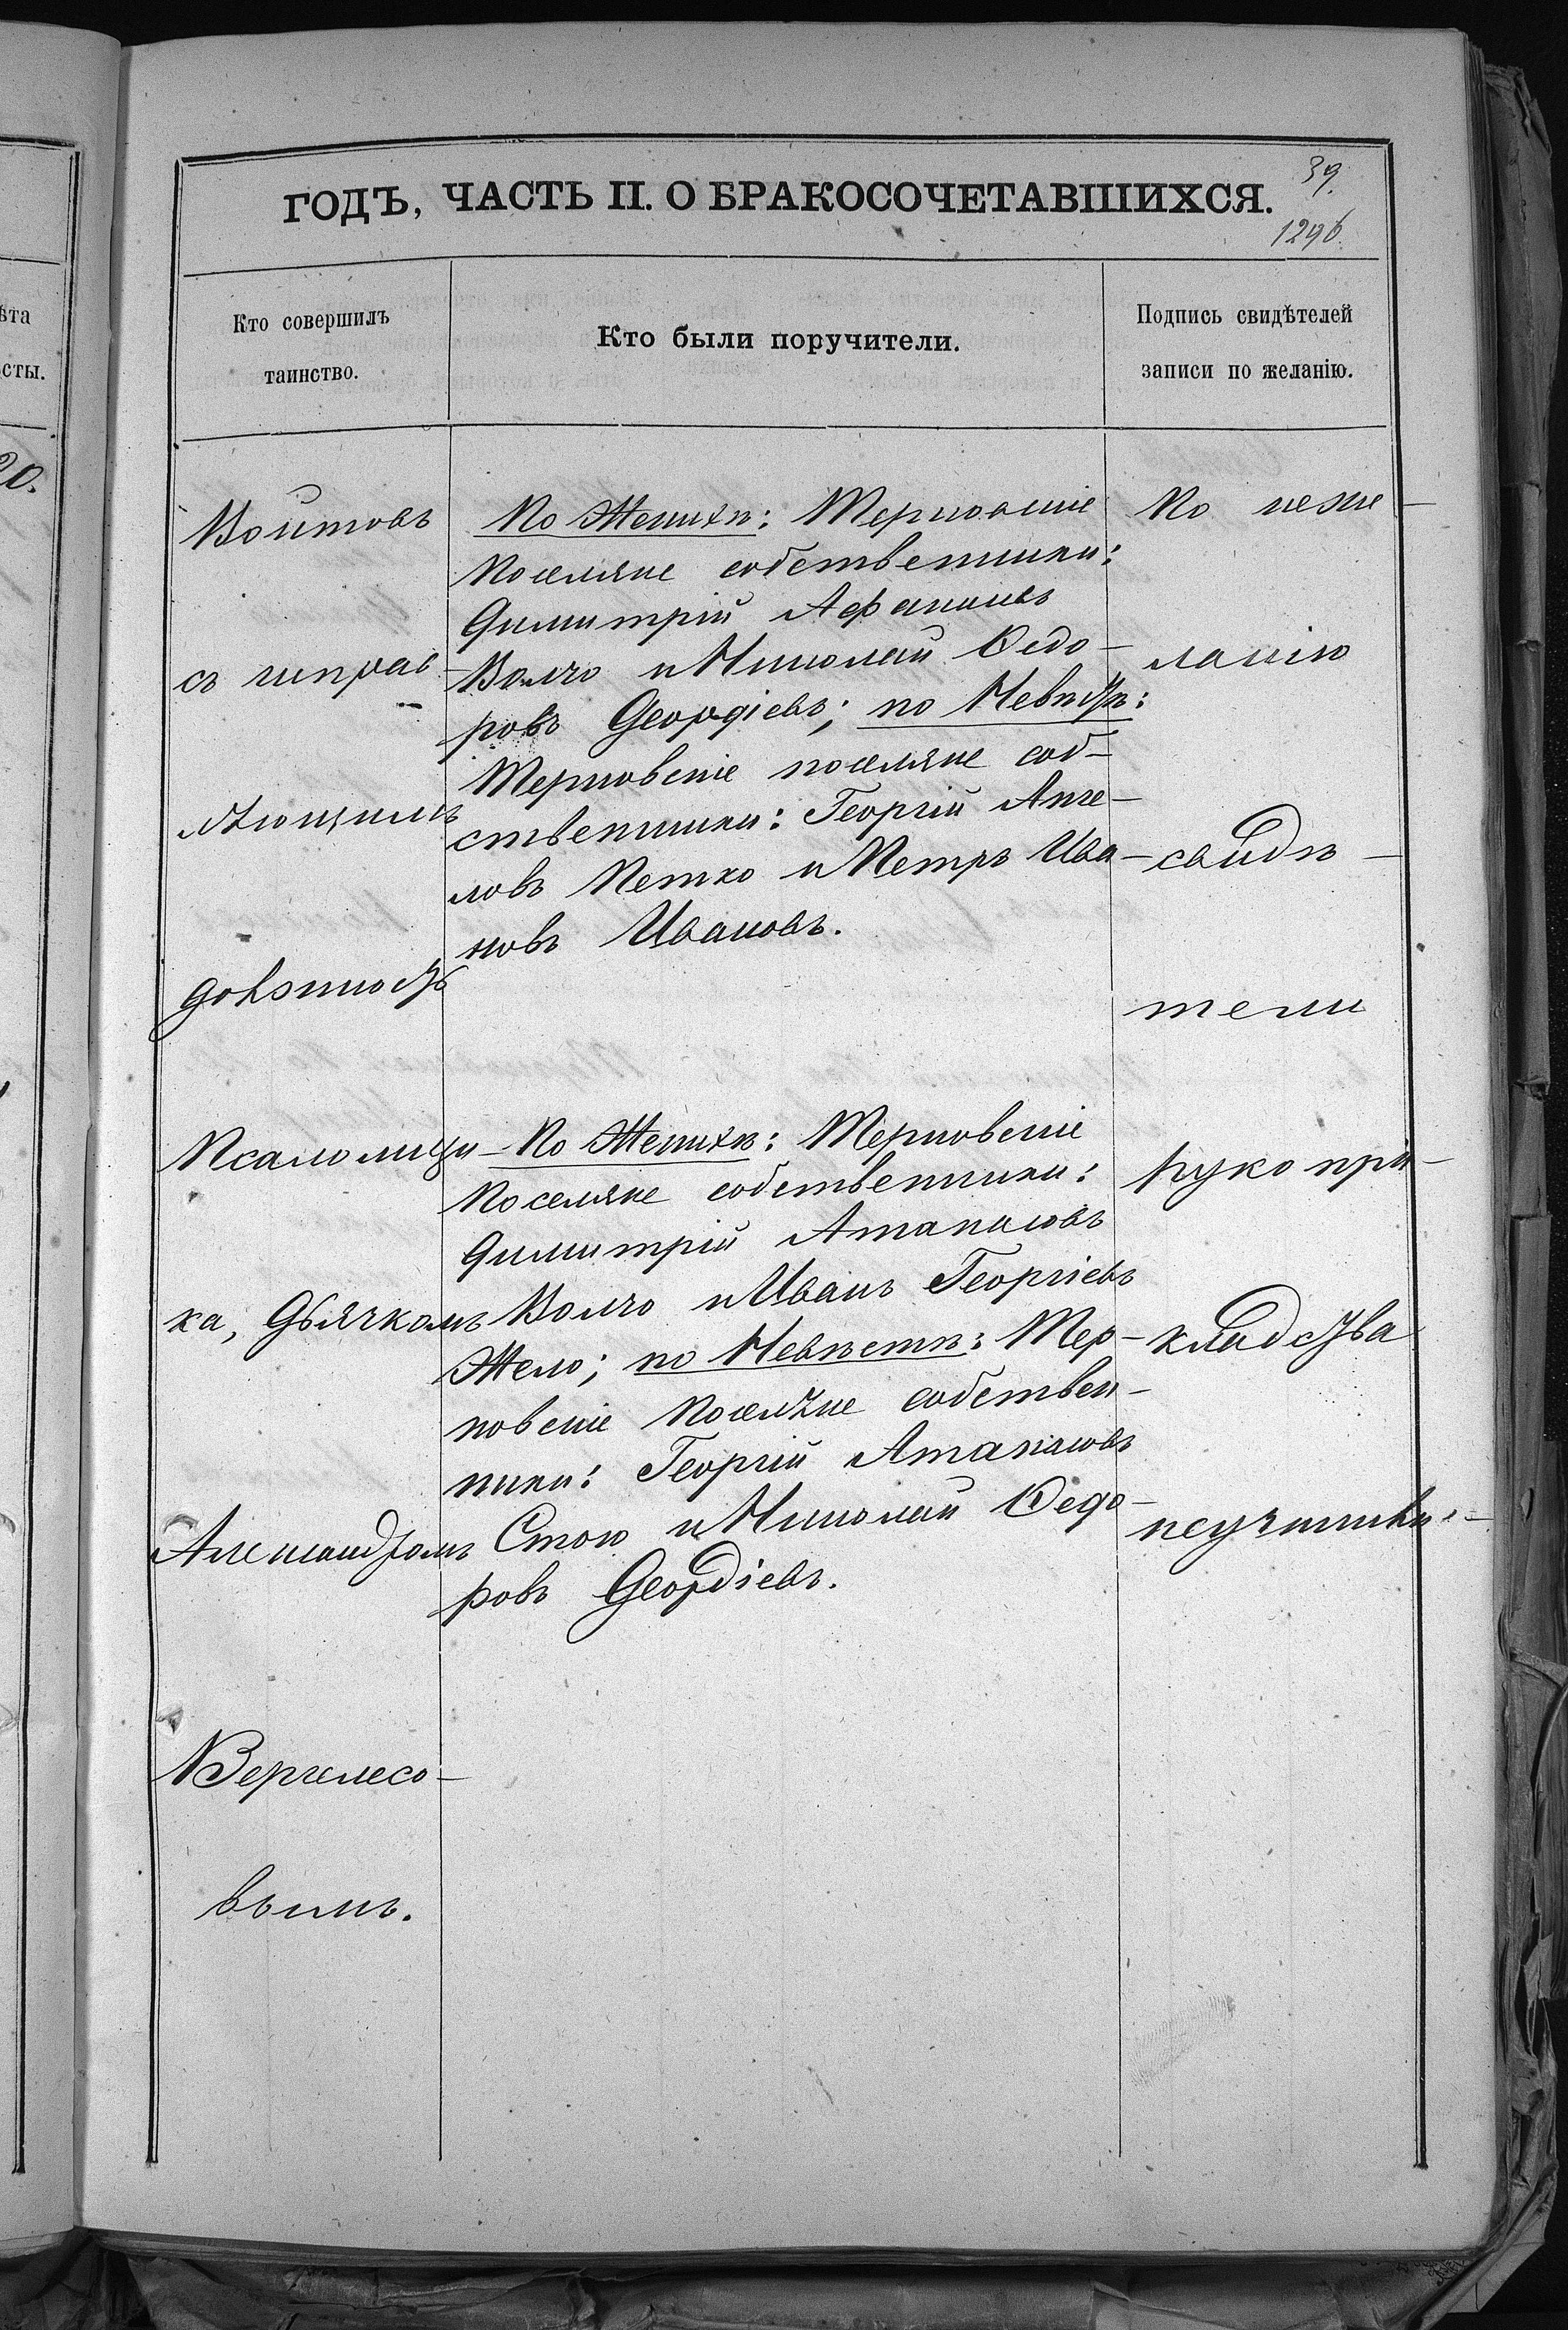 39.
ГОДЪ, ЧАСТЬ II. О БРАКОСОЧЕТАВШИХСЯ.
1296.
ѣта
сты.
20.
Кто совершилъ
таинство.
Кто были поручители.
Подпись свидѣтелей
записи по желанію.
Войтовъ
съ исправ-
ляющимъ
должность
Псаломщи-
ка, Дьячкомъ
Александромъ
Вергелесо-
вымъ.
По Женихѣ: Терновскіе
поселяне собственники:
Димитрій Афанасіевъ
Волчо и Николай Ѳедо-
ровъ Геордіевъ; по Невѣстѣ:
Терновскіе поселяне соб-
ственники: Георгій Анге-
ловъ Петко и Петръ Ива-
новъ Ивановъ.
По Женихѣ: Терновскіе
поселяне собственники:
Димитрій Атанасовъ
Волчо и Иванъ Георгіевъ
Жело; по Невѣстѣ: Тер-
новскіе поселяне собствен-
ники: Георгій Атанасовъ
Стою и Николай Ѳедо-
ровъ Геордіевъ.
По неже-
ланію
свидѣ-
тели
рукопри-
кладства
неучинили.